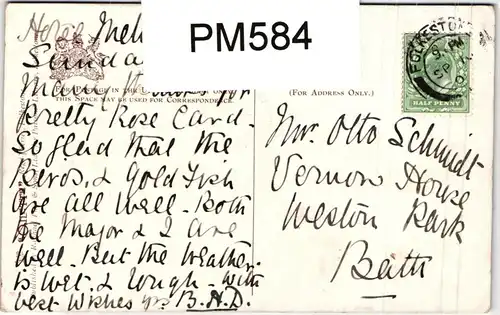 PM584
Hotel
Sunda
Many thanks for
FOR POSTAGE IN THE
THIS SPACE MAY BE USED FOR CORRESPONDENCE.
(FOR ADDRESS ONLY.)
pretty Rose Card.
So glad that the
Birds, & Gold Fish
are all well. Both
the Major & I are
well. But the weather
is wet. & rough. With
best wishes yrs B.H.D.
FOLKESTONE
HALF PENNY
Mr. Otto Schmidt
Vernon House
Weston Park
Bath